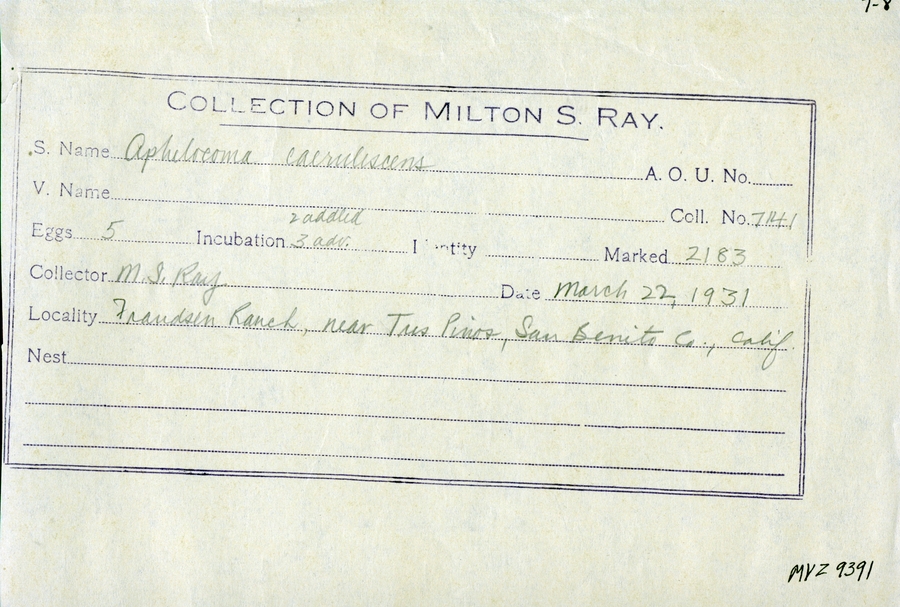 7-8
COLLECTION OF MILTON S. RAY.
S. Name Aphelocoma caerulescens A. O. U. No.
V. Name Coll. No. 7141
2 addled
Eggs 5 Incubation 3 adv. Identity Marked 2183
Collector M. S. Ray Date March 22, 1931
Locality Frandsen Ranch, near Tres Pinos, San Benito Co., Calif.
Nest
MVZ 9391